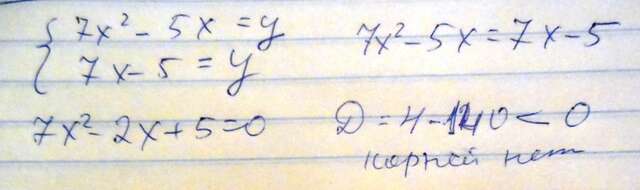 { 7x² - 5x = y
7x - 5 = y
7x² - 5x = 7x - 5
7x² - 2x + 5 = 0
D = 4 - 140 < 0
корней нет